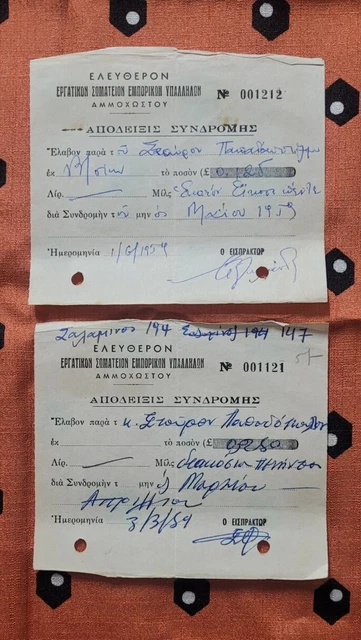 ΕΛΕΥΘΕΡΟΝ
ΕΡΓΑΤΙΚΟΝ ΣΩΜΑΤΕΙΟΝ ΕΜΠΟΡΙΚΩΝ ΥΠΑΛΛΗΛΩΝ
ΑΜΜΟΧΩΣΤΟΥ
№ 001212
ΑΠΟΔΕΙΞΙΣ ΣΥΝΔΡΟΜΗΣ
Ἔλαβον παρὰ τοῦ Σταύρου
ἐκ τὸ ποσὸν (£ 0.125
Λίρ. — Μὶλς Ἑκατὸν Εἴκοσι πέντε
διὰ Συνδρομὴν τοῦ μην ὸς Μαΐου 1959
Ἡμερομηνία 1/6/1959 Ο ΕΙΣΠΡΑΚΤΩΡ
Σαλαμινος 194 194 147
ΕΛΕΥΘΕΡΟΝ
ΕΡΓΑΤΙΚΟΝ ΣΩΜΑΤΕΙΟΝ ΕΜΠΟΡΙΚΩΝ ΥΠΑΛΛΗΛΩΝ
ΑΜΜΟΧΩΣΤΟΥ
№ 001121
ΑΠΟΔΕΙΞΙΣ ΣΥΝΔΡΟΜΗΣ
Ἔλαβον παρὰ τ κ. Σταύρου
ἐκ — τὸ ποσὸν (£ 0.250
Λίρ. — Μὶλς διακόσια πενήντα
διὰ Συνδρομὴν τ μην ὸς Μαρτίου
Ἀπριλίου
Ἡμερομηνία 3/3/59 Ο ΕΙΣΠΡΑΚΤΩΡ